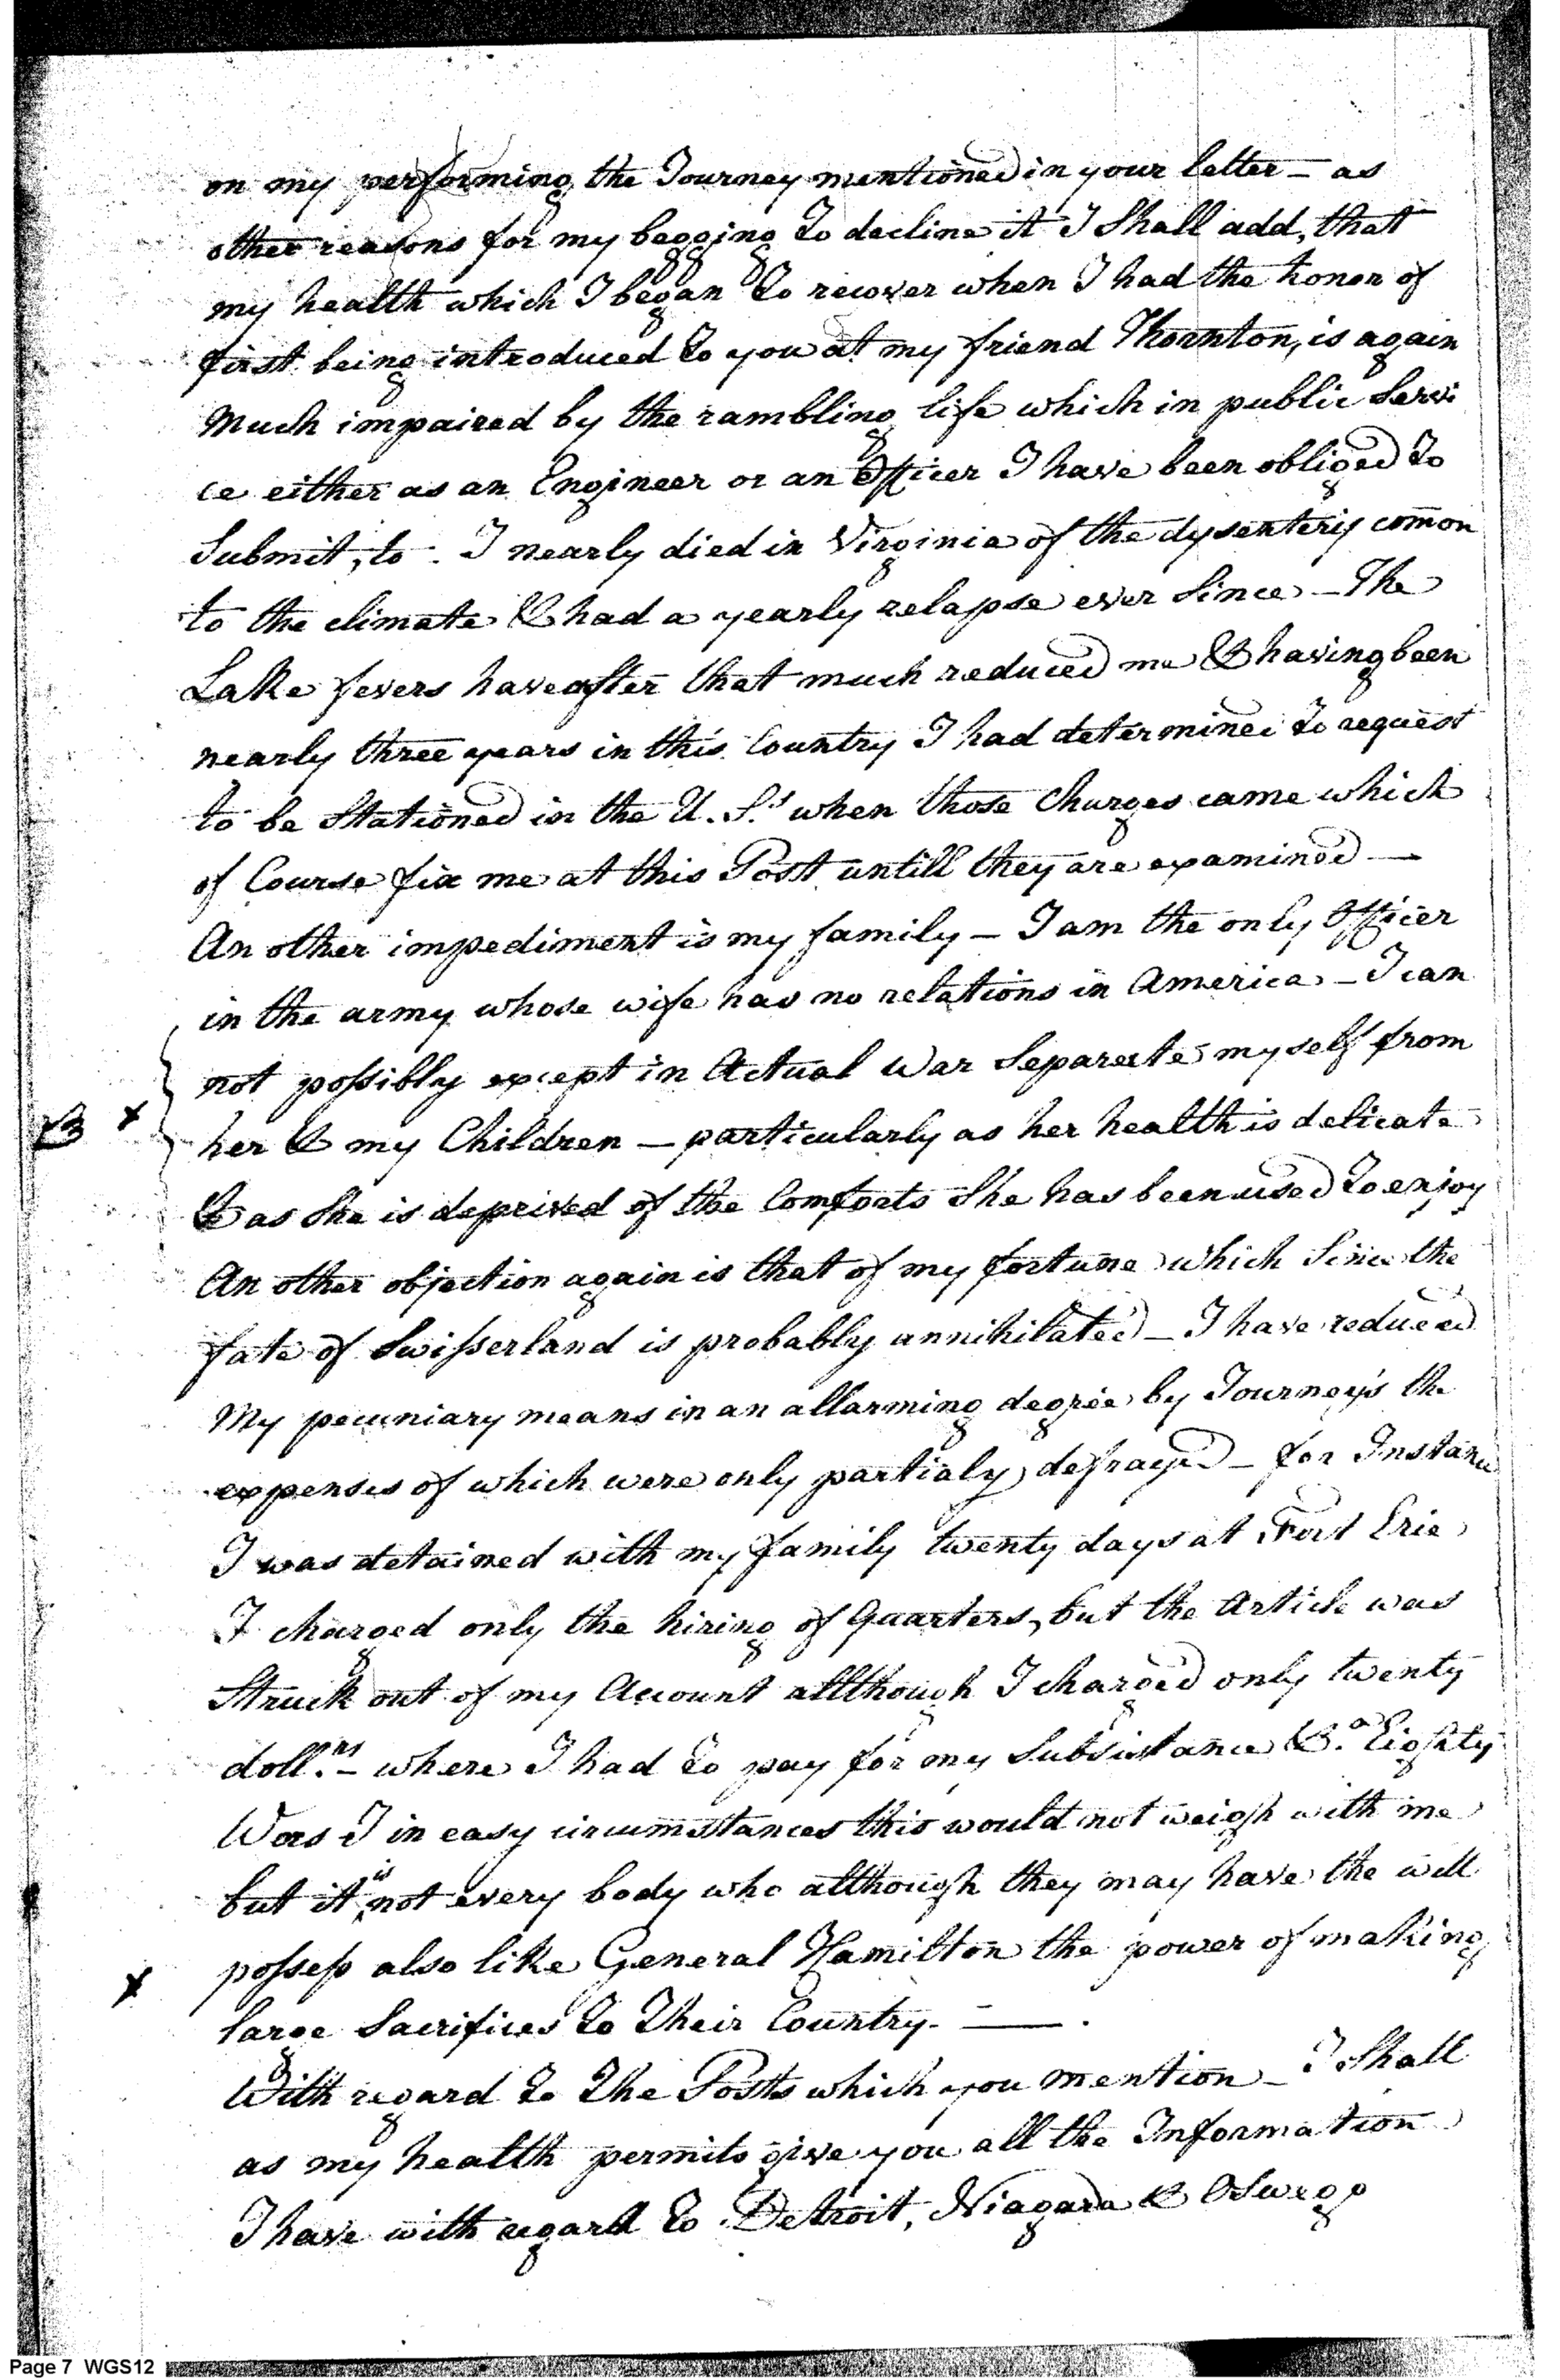 on my performing the Journey mentioned in your letter – as
other reasons for my begging to decline it I Shall add, that
my health which I began to recover when I had the honor of
first being introduced to you at my friend Thornton, is again
Much impaired by the rambling life which in public Servi
ce either as an Engineer or an Officer I have been obliged to
Submit, to. I nearly died in Virginia of the dysentery com̄on
to the climate & had a yearly relapse ever Since – The
Lake fevers have after that much reduced me & having been
nearly three years in this Country I had determined to request
to be Stationed in the U. S.s when those Charges came which
of Course fix me at this Post untill they are examined —
An other impediment is my family – I am the only Officer
in the army whose wife has no relations in America – I can
not possibly except in Actual War Separate myself from
her & my Children – particularly as her health is delicate
& as She is deprived of the Comforts She has been used to enjoy
An other objection again is that of my fortune which Since the
fate of Swisserland is probably annihilated – I have reduced
My pecuniary means in an allarming degree by Journeys the
expenses of which were only partialy defrayed – for Instance
I was detained with my family twenty days at Fort Erie
I charged only the hiring of Quarters, but the Article was
Struck out of my Account allthough I charged only twenty
doll.rs – where I had to pay for my Subsistance &.a Eighty
Was I in easy circumstances this would not weigh with me
but it is not every body who allthough they may have the will
possess also like General Hamilton the power of making
large Sacrifices to Their Country. — .
With regard to The Posts which you mention – I Shall
as my health permits give you all the Information
I have with regard to Detroit, Niagara & Oswego
Page 7 WGS12